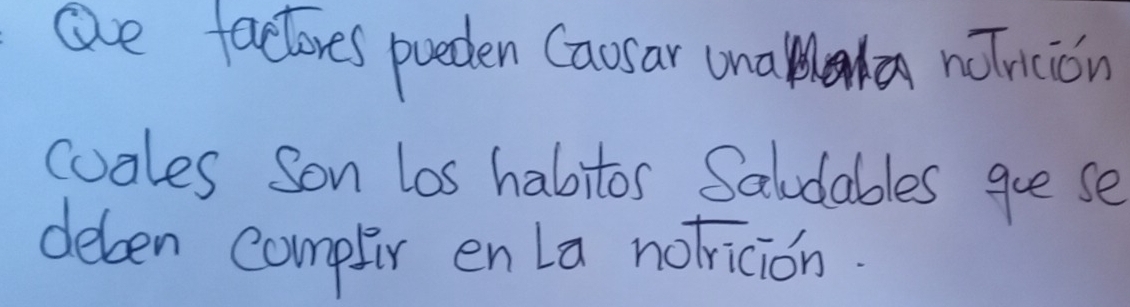 Que factores pueden Causar una Mala nutrición
cuales son los habitos Saludables que se
deben cumplir en La nutrición.